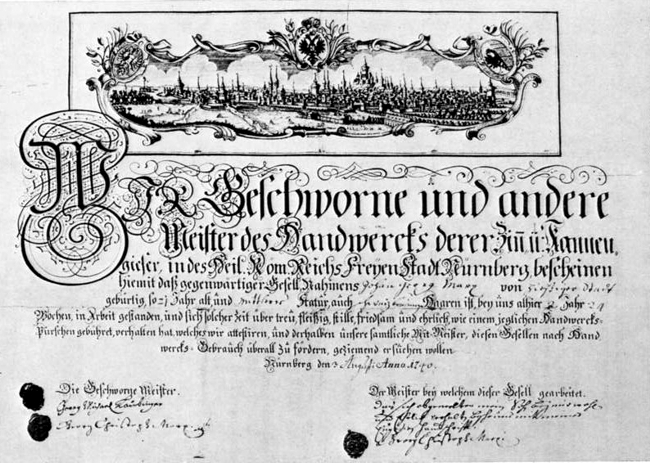 WIR Geschworne und andere
Meister des Handwercks derer Zinn u: Kannen,
gieser, in des Heil. Röm. Reichs Freyen Stadt Nürnberg, bescheinen
hiemit daß gegenwärtiger Gesell, Nahmens Johann Georg Marx von hiesiger Stadt
gebürtig, so 21 Jahr alt, und mittlerer Statur, auch Haaren ist, bey uns alhier 2 Jahr 24
Wochen, in Arbeit gestanden, und sich solcher Zeit über treu, fleißig, stille, friedsam und ehrlich, wie einem jeglichen Handwercks-
Purschen gebühret, verhalten hat, welches wir attestiren, und derhalben unsere samtliche Mit-Meister, diesen Gesellen nach Hand
wercks-Gebrauch überall zu fördern, geziemend ersuchen wollen
Nürnberg den 3 Augusti Anno 17
Die Geschworne Meister.
Georg
Georg Christoph Marx
Der Meister bey welchem dieser Gesell gearbeitet.
Georg Christoph Marx